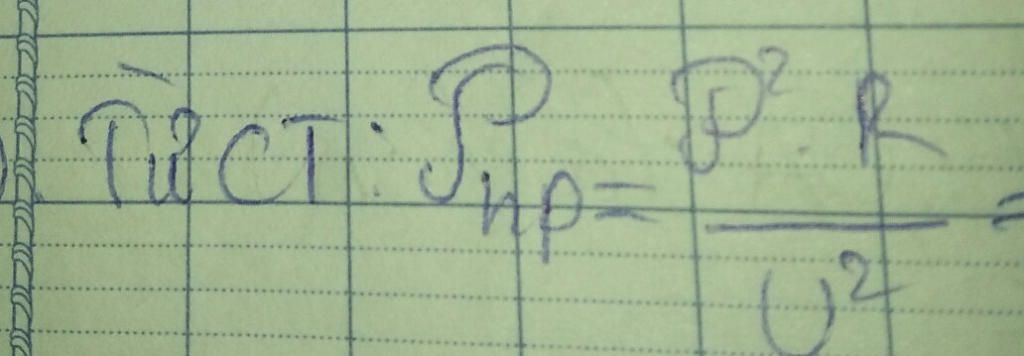 Từ CT: P hp = P² . R / U² =